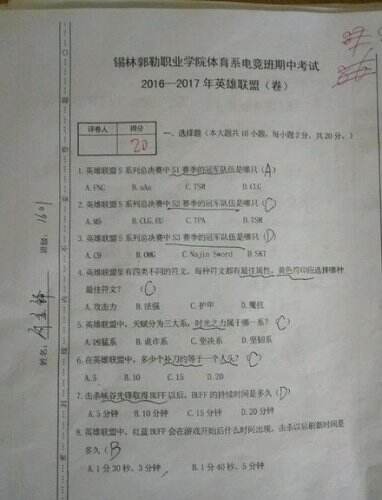 锡林郭勒职业学院体育系电竞班期中考试
2016—2017 年英雄联盟（卷）
评卷人 得分
20
一、选择题（本大题共 10 小题，每小题 2 分，共 20 分。）
1. 英雄联盟 S 系列总决赛中 S1 赛季的冠军队伍是哪只（A）
A. FNC B. aAa C. TSM D. CLG
2. 英雄联盟 S 系列总决赛中 S2 赛季的冠军队伍是哪只（C）
A. M5 B. CLG.EU C. TPA D. TSM
3. 英雄联盟 S 系列总决赛中 S3 赛季的冠军队伍是哪只（D）
A. C9 B. OMG C. Najin Sword D. SKT
4. 英雄联盟里有四类不同的符文，每种符文都有最佳属性，黄色符印应选择哪种
最佳符文？ （C）
A. 攻击力 B. 法强 C. 护甲 D. 魔抗
5. 英雄联盟中，天赋分为三大系，时光之力属于哪一系？（C）
A. 凶猛系 B. 诡诈系 C. 坚决系 D. 坚韧系
6. 在英雄联盟中，多少个补刀约等于一个人头？（C）
A. 5 B. 10 C. 15 D. 20
7. 击杀峡谷先锋取得 BUFF 以后，BUFF 的持续时间是多久（D）
A. 5 分钟 B. 10 分钟 C. 15 分钟 D. 20 分钟
8. 英雄联盟中，红蓝 BUFF 会在游戏开始后什么时间出现，击杀以后刷新时间是
多久（B
A. 1 分 30 秒、3 分钟 B. 1 分 40 秒、5 分钟
班级：1601
姓名：